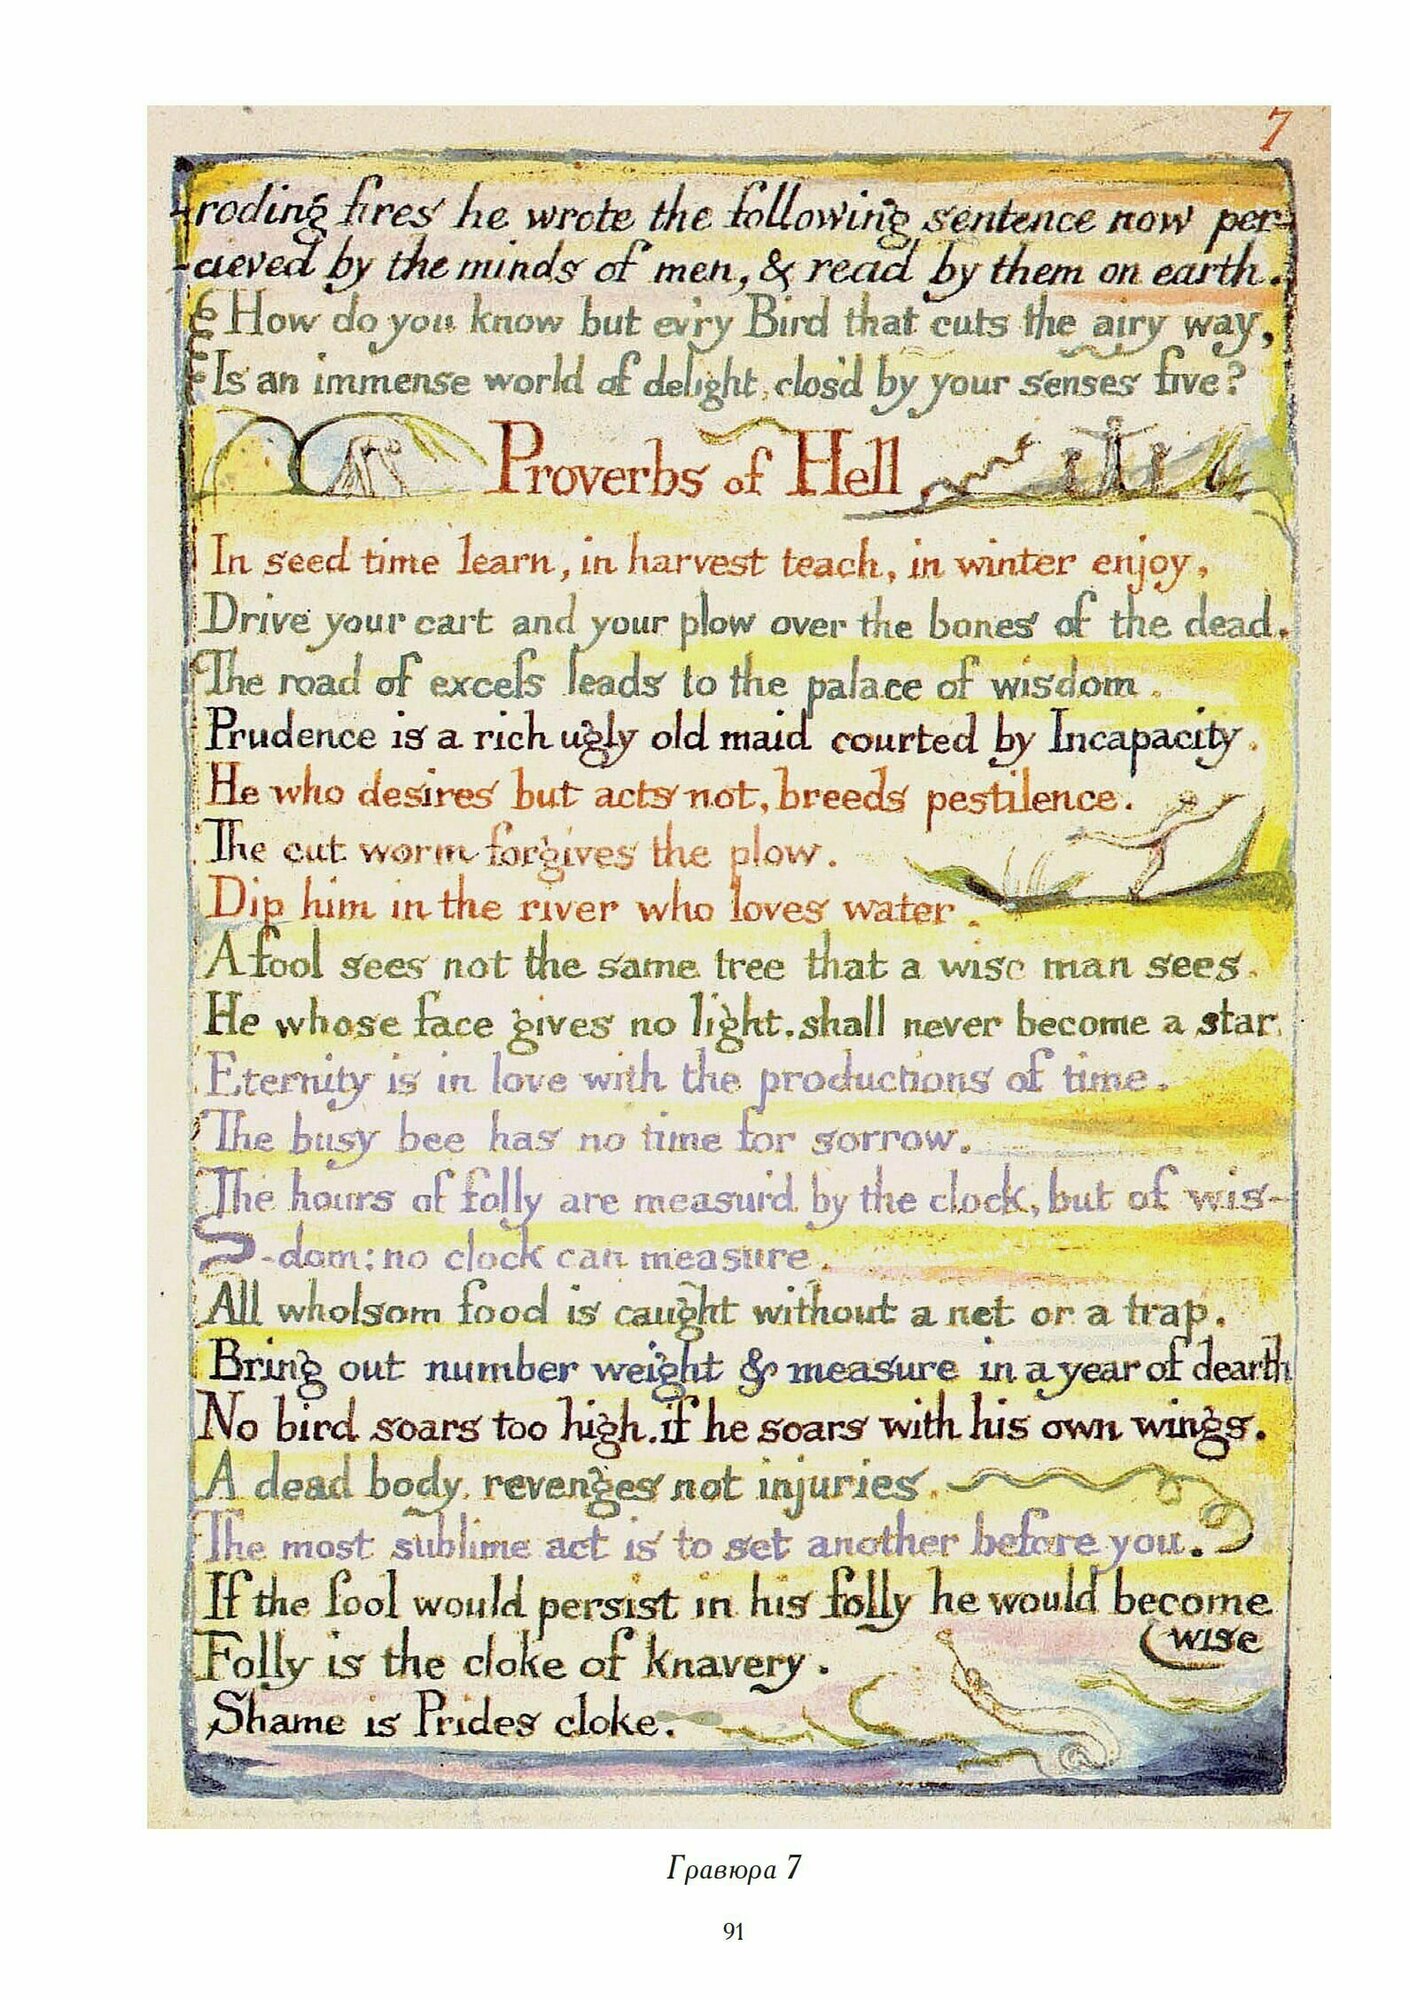 7
-roding fires he wrote the following sentence now per-
-cieved by the minds of men, & read by them on earth.
How do you know but ev'ry Bird that cuts the airy way,
Is an immense world of delight, clos'd by your senses five?
Proverbs of Hell
In seed time learn, in harvest teach, in winter enjoy,
Drive your cart and your plow over the bones of the dead.
The road of exceſs leads to the palace of wisdom.
Prudence is a rich ugly old maid courted by Incapacity.
He who desires but acts not, breeds pestilence.
The cut worm forgives the plow.
Dip him in the river who loves water.
A fool sees not the same tree that a wise man sees.
He whose face gives no light, shall never become a star.
Eternity is in love with the productions of time.
The busy bee has no time for sorrow.
The hours of folly are measur'd by the clock, but of wis-
-dom: no clock can measure.
All wholsom food is caught without a net or a trap.
Bring out number weight & measure in a year of dearth
No bird soars too high. if he soars with his own wings.
A dead body. revenges not injuries.
The most sublime act is to set another before you.
If the fool would persist in his folly he would become
(wise
Folly is the cloke of knavery.
Shame is Prides cloke.
Гравюра 7
91